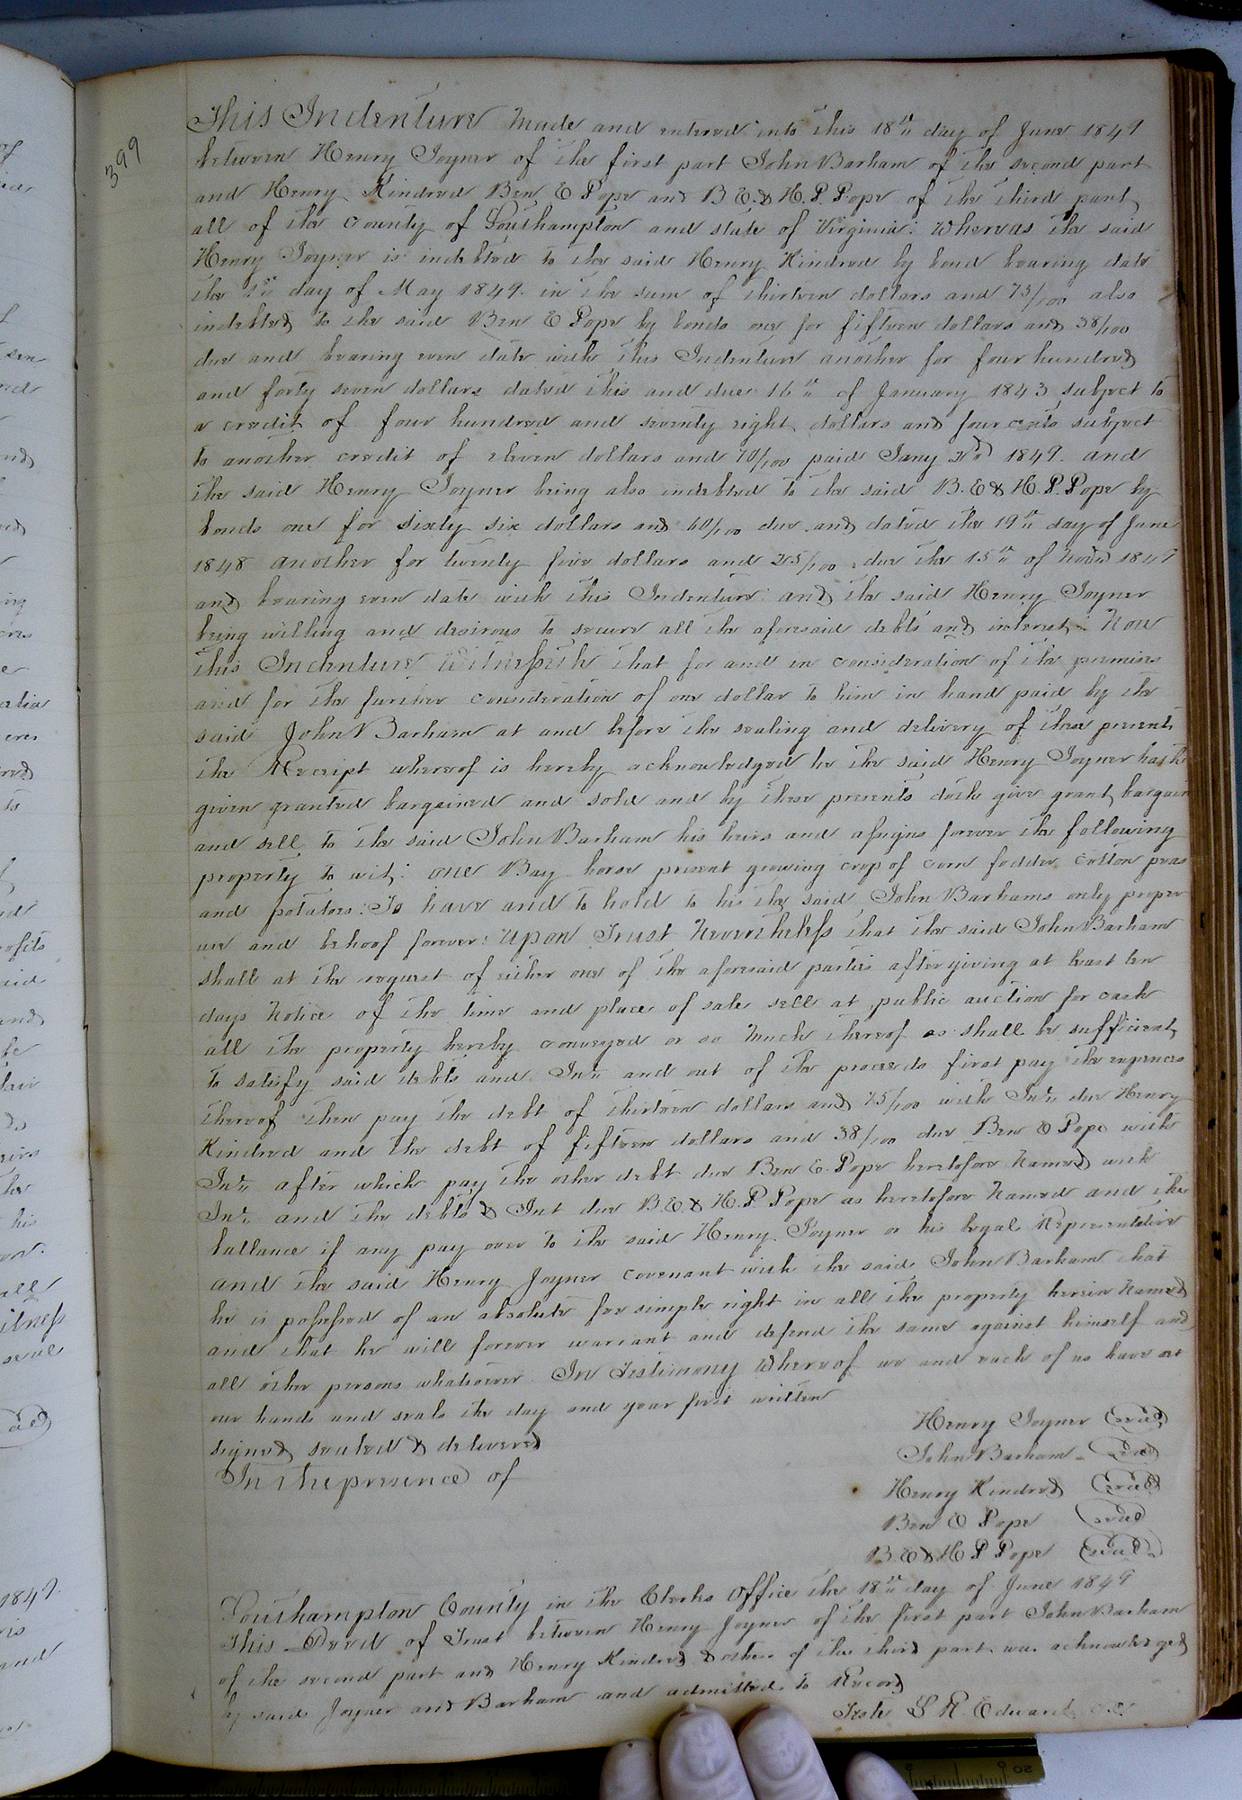 399
This Indenture Made and entered into this 18th day of June 1849
between Henry Joyner of the first part John Barham of the second part
and Henry Kindred Ben E Pope and B E. & H. P. Pope of the third part
all of the county of Southampton and state of Virginia: Whereas the said
Henry Joyner is indebted to the said Henry Kindred by bond bearing date
the day of May 1849 in the sum of thirteen dollars and 75/100 also
indebted to the said Ben E Pope by bonds one for fifteen dollars and 38/100
due and bearing even date with this Indenture another for four hundred
and forty seven dollars dated this and due 16th of January 1843 subject to
a credit of four hundred and seventy eight dollars and four cents subject
to another credit of eleven dollars and 70/100 paid Jany 1849. and
the said Henry Joyner being also indebted to the said B. E & H. P. Pope by
bonds one for sixty six dollars and 60/100 due and dated the 19th day of June
1848 another for twenty five dollars and 25/100 due the 15th of 1847
and bearing even date with this Indenture: and the said Henry Joyner
being willing and desirous to secure all the aforesaid debts and interest: Now
this Indenture Witnesseth that for and in consideration of the premises
and for the further consideration of one dollar to him in hand paid by the
said John Barham at and before the sealing and delivery of these presents
the Receipt whereof is hereby acknowledged he the said Henry Joyner hath
given granted bargained and sold and by these presents doth give grant bargain
and sell to the said John Barham his heirs and assigns forever the following
property to wit: one Bay horse present growing crop of corn fodder cotton peas
and potatoes: To have and to hold to his the said John Barhams only proper
use and behoof forever: Upon Trust Nevertheless that the said John Barham
shall at the request of either one of the aforesaid parties after giving at least ten
days Notice of the time and place of sale sell at public auction for cash
all the property hereby conveyed or so Much thereof as shall be sufficient
to satisfy said debts and Int: and out of the proceeds first pay the expences
thereof then pay the debt of thirteen dollars and 75/100 with Int: due Henry
Kindred and the debt of fifteen dollars and 38/100 due Ben E Pope with
Int: after which pay the other debt due Ben E. Pope heretofore Named with
Int: and the debts & Int due B. E & H. P Pope as heretofore Named and the
ballance if any pay over to the said Henry Joyner or his legal Representative
and the said Henry Joyner covenant with the said John Barham that
he is possessed of an absolute fee simple right in all the property herein Named
and that he will forever warrant and defend the same against himself and
all other persons whatsoever In Testimony Whereof we and each of us have set
our hands and seals the day and year first written
signed sealed & delivered
In the presence of
Henry Joyner (seal)
John Barham (seal)
Henry Kindred (seal)
Ben E Pope (seal)
B. E & H P Pope (seal)
Southampton County in the Clerks Office the 18th day of June 1849
This Deed of Trust between Henry Joyner of the first part John Barham
of the second part and Henry Kindred & others of the third part was acknowledged
by said Joyner and Barham and admitted to Record
Teste L R Edwards C.C.